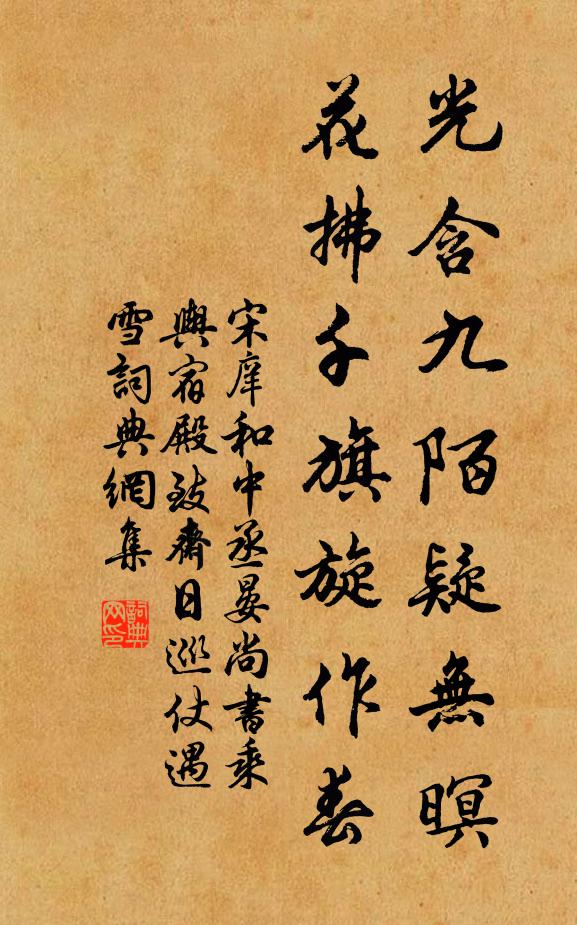 光含九陌疑無暝
花拂千旗旋作春
宋庠和中丞晏尚書乘
輿宿殿致齋日巡仗遇
雪詞典網集
詞典网印